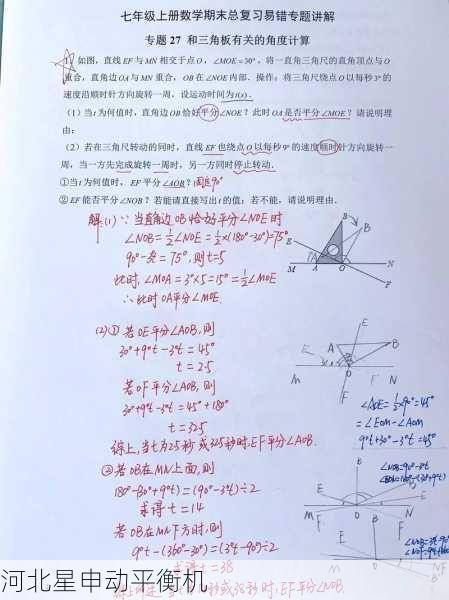 七年级上册数学期末总复习易错专题讲解
专题 27 和三角板有关的角度计算
1. 如图，直线 EF 与 MN 相交于点 O，∠MOE=30°，将一直角三角尺的直角顶点与 O
重合，直角边 OA 与 MN 重合，OB 在∠NOE 内部．操作：将三角尺绕点 O 以每秒 3°的
速度沿顺时针方向旋转一周，设运动时间为 t(s)．
（1）当 t 为何值时，直角边 OB 恰好平分∠NOE？此时 OA 是否平分∠MOE？请说明理
由；
（2）若在三角尺转动的同时，直线 EF 也绕点 O 以每秒 9°的速度顺时针方向旋转一
周，当一方先完成旋转一周时，另一方同时停止转动．
①当 t 为何值时，EF 平分∠AOB？
②EF 能否平分∠NOB？若能请直接写出 t 的值；若不能，请说明理由．
解:(1) ∵当直角边OB恰好平分∠NOE时
∠NOB=½∠NOE=½×(180°-30°)=75°
90°-3t=75°,则t=5
此时,∠MOA=3°×5=15°=½∠MOE
∴此时OA平分∠MOE.
(2)①若OE平分∠AOB,则
30°+9°t-3°t=45°
t=2.5
若OF平分∠AOB,则
30°+9°t-3°t=45°+180°
t=32.5
综上,当t为2.5秒或32.5秒时,EF平分∠AOB.
②若OB在MN上面,则
180°-(30°+9°t)=(90°-3°t)÷2
求得t=14
若OB在MN下方时,则
9°t-(360°-30°)=(3°t-90°)÷2
t=38
EF平分∠NOB
∠AOE=½×90°=45°
=∠EOM-∠AOM
9°t+30°-3°t=45°
∠NOB=90°-3t
河北星申动平衡机